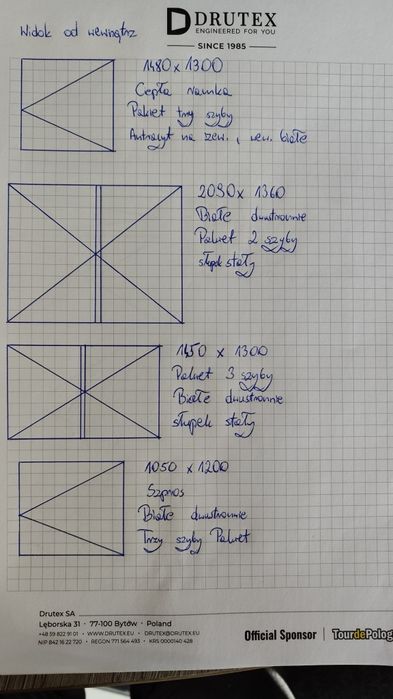 Widok od wewnątrz
DRUTEX
ENGINEERED FOR YOU
SINCE 1985
1480 x 1300
Ciepła ramka
Pakiet trzy szyby
Antracyt na zew., wew. białe
2090 x 1360
Białe dwustronnie
Pakiet 2 szyby
słupek stały
1450 x 1300
Pakiet 3 szyby
Białe dwustronnie
słupek stały
1050 x 1200
Szpros
Białe dwustronnie
Trzy szyby Pakiet
Drutex SA
Lęborska 31 • 77-100 Bytów • Poland
+48 59 822 91 01 • WWW.DRUTEX.EU • DRUTEX@DRUTEX.EU
NIP 842 16 22 720 • REGON 771 564 493 • KRS 0000140 428
Official Sponsor | Tour de Polog